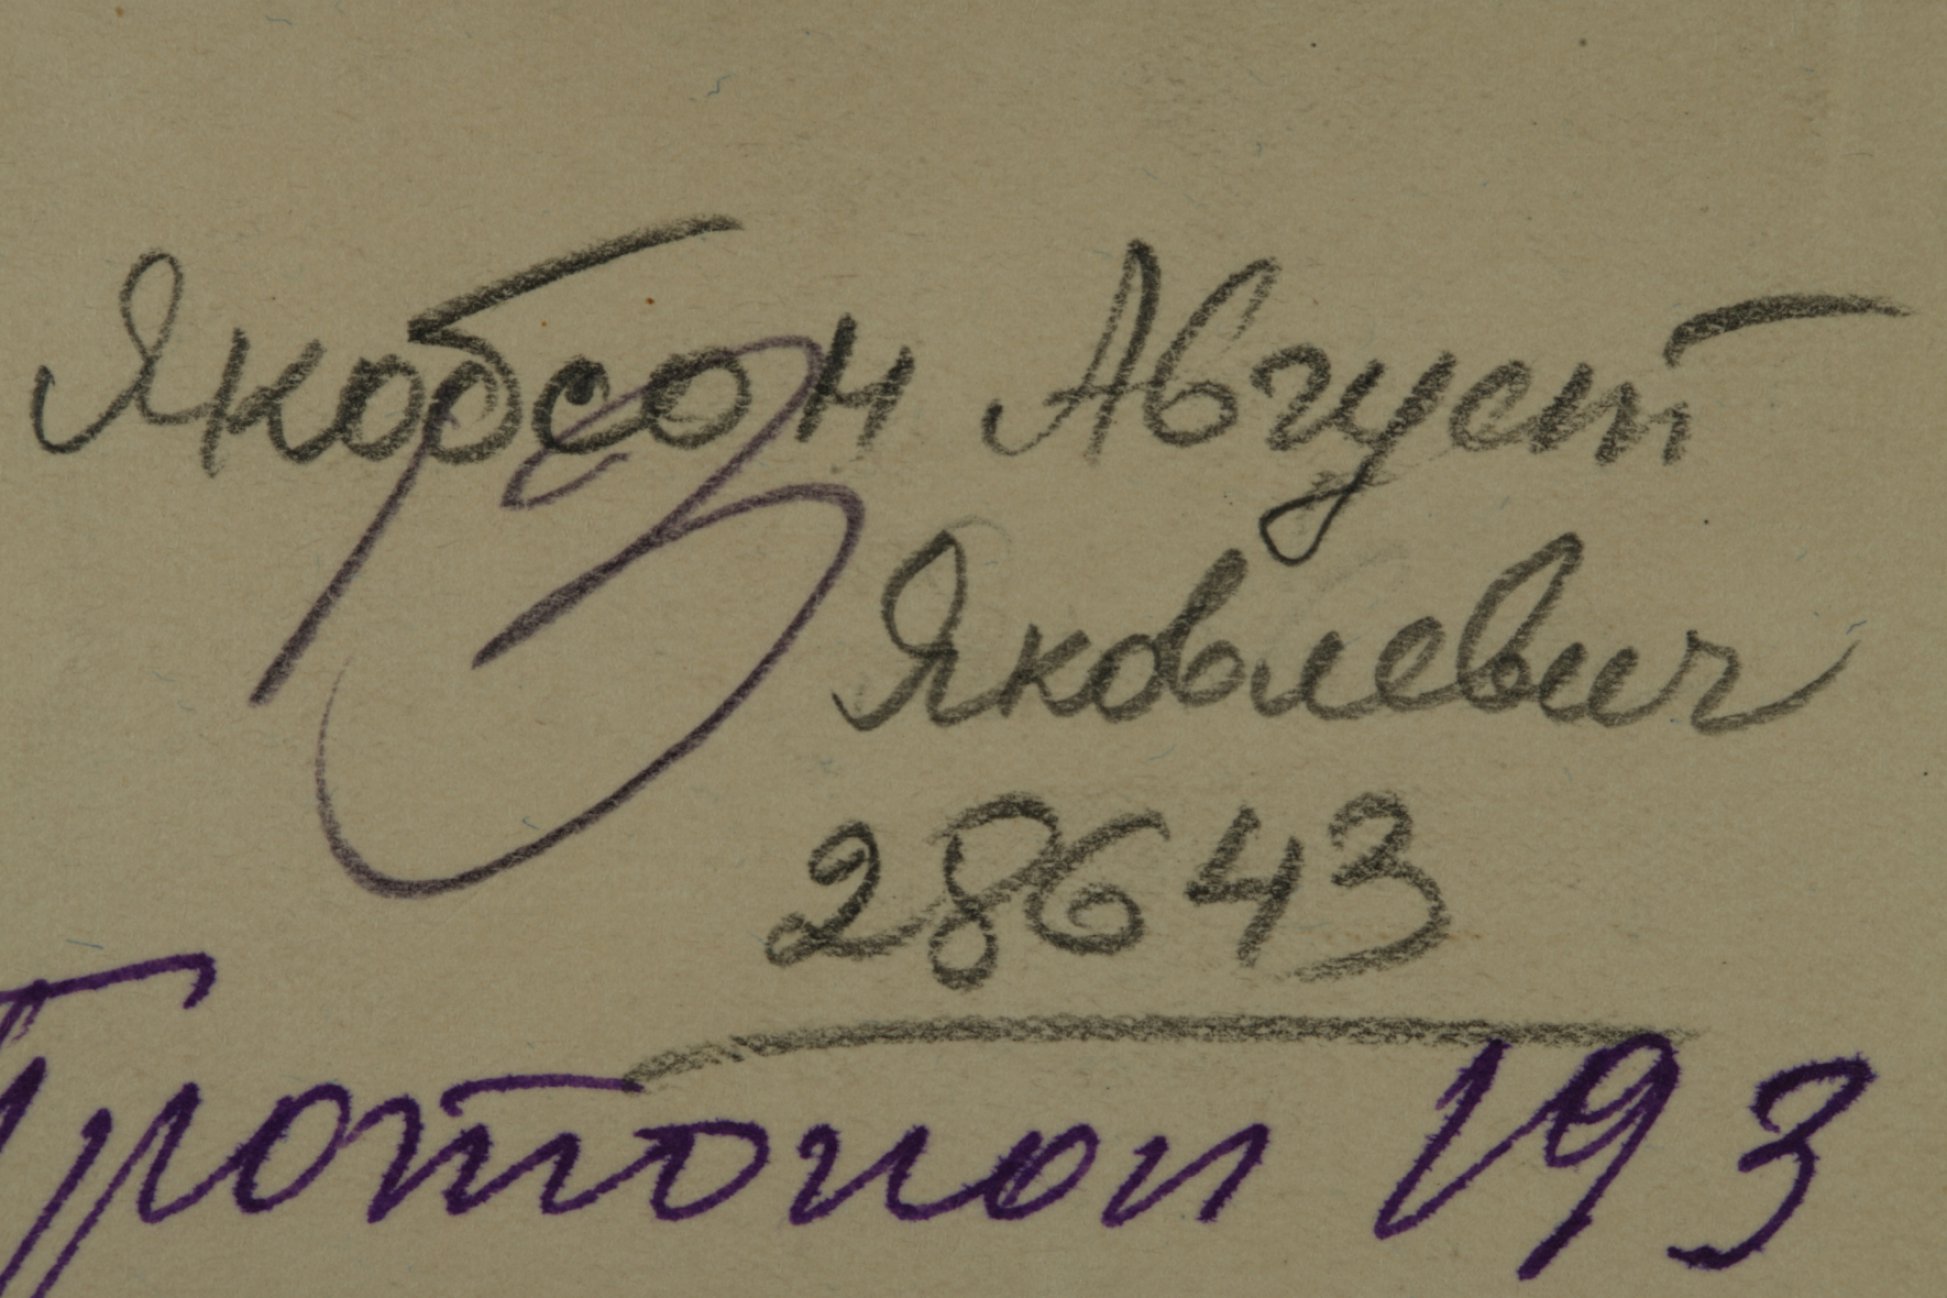 Якобсон Август
Яковлевич
28643
193